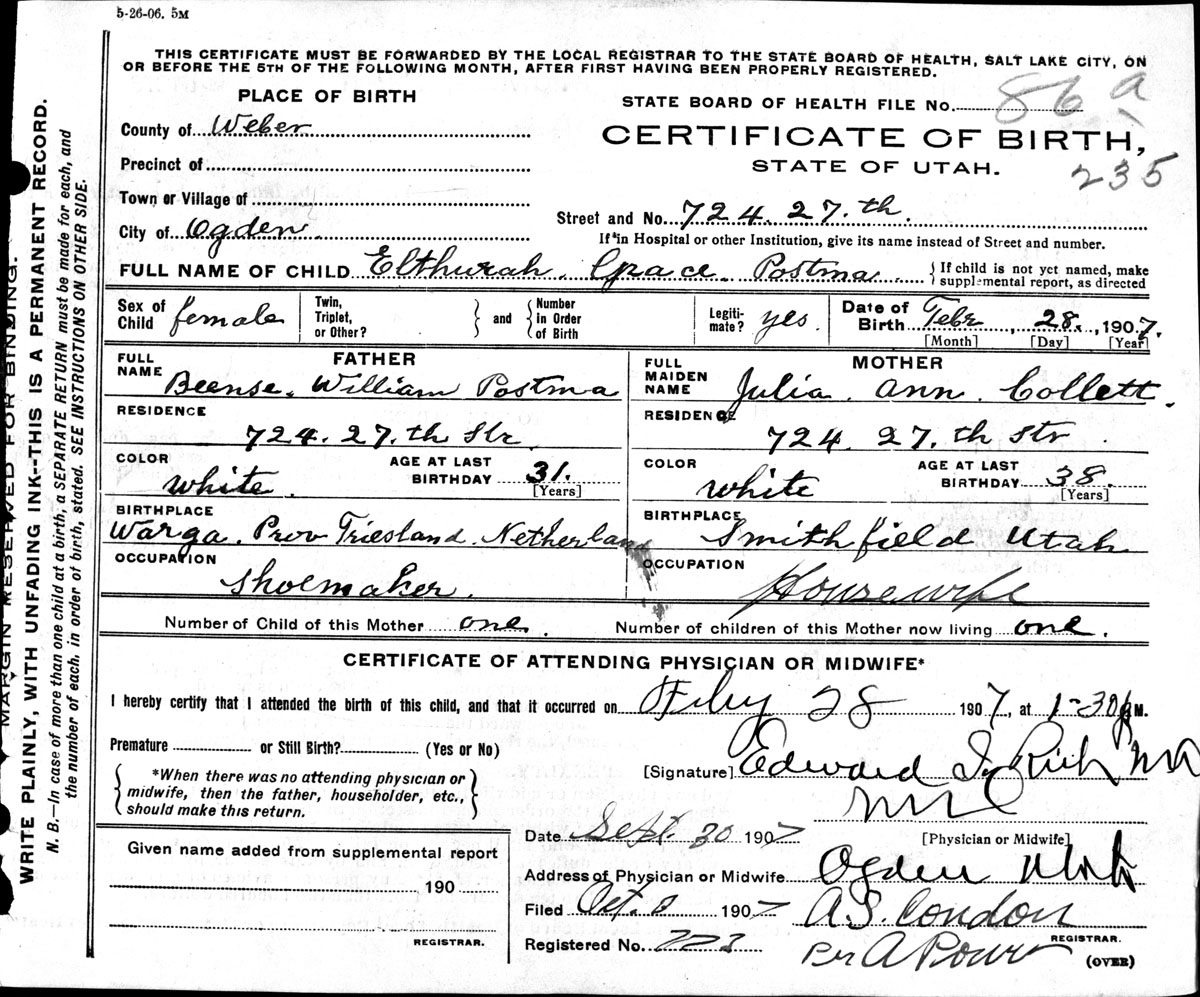 5-26-06. 5M
THIS CERTIFICATE MUST BE FORWARDED BY THE LOCAL REGISTRAR TO THE STATE BOARD OF HEALTH, SALT LAKE CITY, ON
OR BEFORE THE 5TH OF THE FOLLOWING MONTH, AFTER FIRST HAVING BEEN PROPERLY REGISTERED.
MARGIN RESERVED FOR BINDING.
WRITE PLAINLY, WITH UNFADING INK--THIS IS A PERMANENT RECORD.
N. B.—In case of more than one child at a birth, a SEPARATE RETURN must be made for each, and
the number of each, in order of birth, stated. SEE INSTRUCTIONS ON OTHER SIDE.
PLACE OF BIRTH
County of Weber
Precinct of
Town or Village of
City of Ogden
STATE BOARD OF HEALTH FILE No. 86 a
CERTIFICATE OF BIRTH,
STATE OF UTAH.
235
Street and No. 724. 27.th.
If in Hospital or other Institution, give its name instead of Street and number.
FULL NAME OF CHILD Elthurah. Grace. Postma { If child is not yet named, make
supplemental report, as directed
Sex of Child female Twin, Triplet, or Other? } and { Number in Order of Birth Legiti-mate? yes. Date of Birth Febr, 28., 1907.
[Month] [Day] [Year]
FATHER
FULL NAME Beense. William Postma
RESIDENCE
724. 27.th Str
COLOR white. AGE AT LAST BIRTHDAY 31.
[Years]
BIRTHPLACE
Warga. Prov Friesland. Netherland
OCCUPATION
Shoemaker.
MOTHER
FULL MAIDEN NAME Julia. Ann. Collett.
RESIDENCE
724 27.th Str.
COLOR white AGE AT LAST BIRTHDAY 38.
[Years]
BIRTHPLACE
Smithfield Utah
OCCUPATION
Housewife
Number of Child of this Mother one. Number of children of this Mother now living one.
CERTIFICATE OF ATTENDING PHYSICIAN OR MIDWIFE*
I hereby certify that I attended the birth of this child, and that it occurred on Feby 28 1907, at 1-30 p M.
Premature or Still Birth? (Yes or No)
{ *When there was no attending physician or
midwife, then the father, householder, etc.,
should make this return. }
[Signature] Edward I. Rich MD
[Physician or Midwife]
Date Sept. 30 1907
Address of Physician or Midwife Ogden Utah
Filed Oct. 8 1907 A. S. Condon
REGISTRAR.
Registered No. 223 Per A
(OVER)
Given name added from supplemental report
190
REGISTRAR.